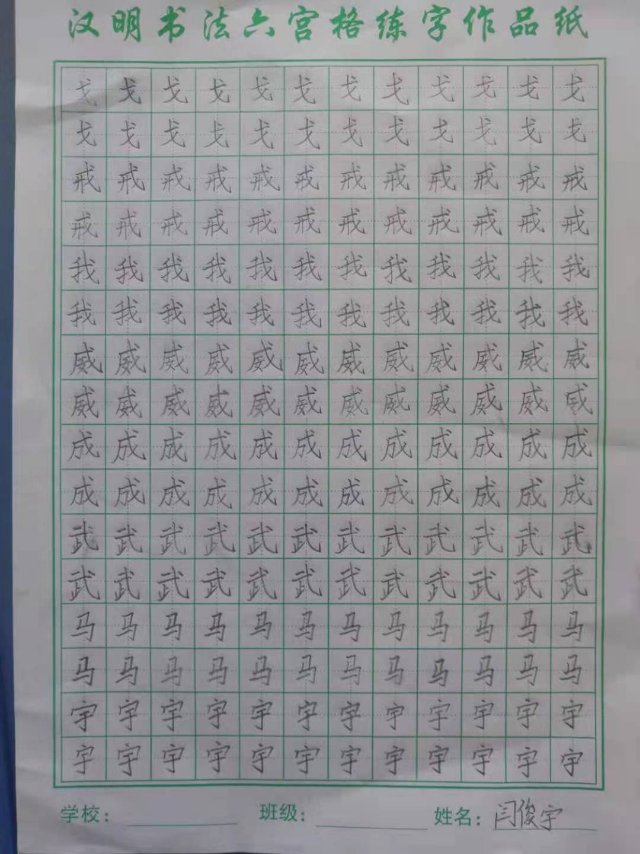 汉明书法六宫格练字作品纸
戈戈戈戈戈戈戈戈戈戈戈戈
戈戈戈戈戈戈戈戈戈戈戈戈
戒戒戒戒戒戒戒戒戒戒戒戒
戒戒戒戒戒戒戒戒戒戒戒戒
我我我我我我我我我我我我
我我我我我我我我我我我我
威威威威威威威威威威威威
威威威威威威威威威威威威
成成成成成成成成成成成成
成成成成成成成成成成成成
武武武武武武武武武武武武
武武武武武武武武武武武武
马马马马马马马马马马马马
马马马马马马马马马马马马
宇宇宇宇宇宇宇宇宇宇宇宇
宇宇宇宇宇宇宇宇宇宇宇宇
学校： 班级： 姓名：闫俊宇